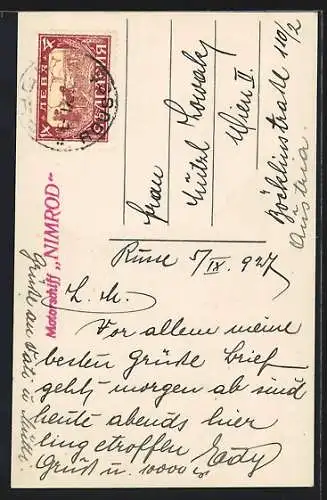 Motorschiff „NIMROD“
Frau
Wien II.
Böcklinstraße 110/2
Austria.
Ruse 5/IX. 927
L. M.
Vor allem meine
besten Grüße Brief
geht morgen ab sind
heute abends hier
eingetroffen Edy
Gruß u. 10000
Grüße an Vati u.